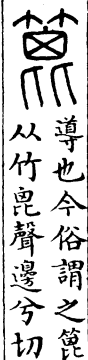 篦
導也今俗謂之篦
从竹𣬉聲邊兮切